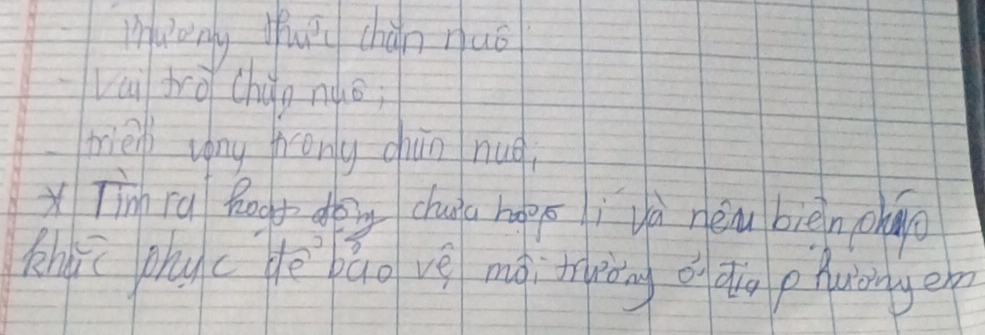 - phương thức chăn nuô
- Vai trò chăn nuô;
- triển vọng trong chăn nuô,
* Tìm ra hoạt động chưa hợp lí và nêu biện pháp
khắc phục để bảo vệ môi trường ở địa phương em